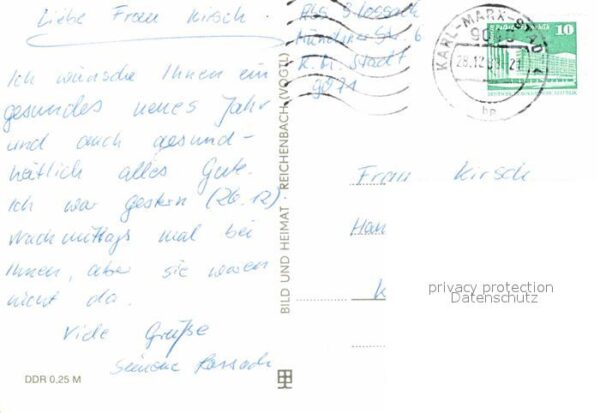 Liebe Frau Kirsch.
Ich wünsche Ihnen ein
gesundes neues Jahr
und auch gesund-
heitlich alles Gute.
Ich war gestern (26.12).
Nachmittags mal bei
Ihnen, aber sie waren
nicht da.
Viele Grüße
Simone
DDR 0,25 M
BILD UND HEIMAT REICHENBACH (VOGTL)
Str. 6
K. M. Stadt
9071
KARL-MARX-STADT
28.12.
10
Frau Kirsch
Han
K
privacy protection
Datenschutz